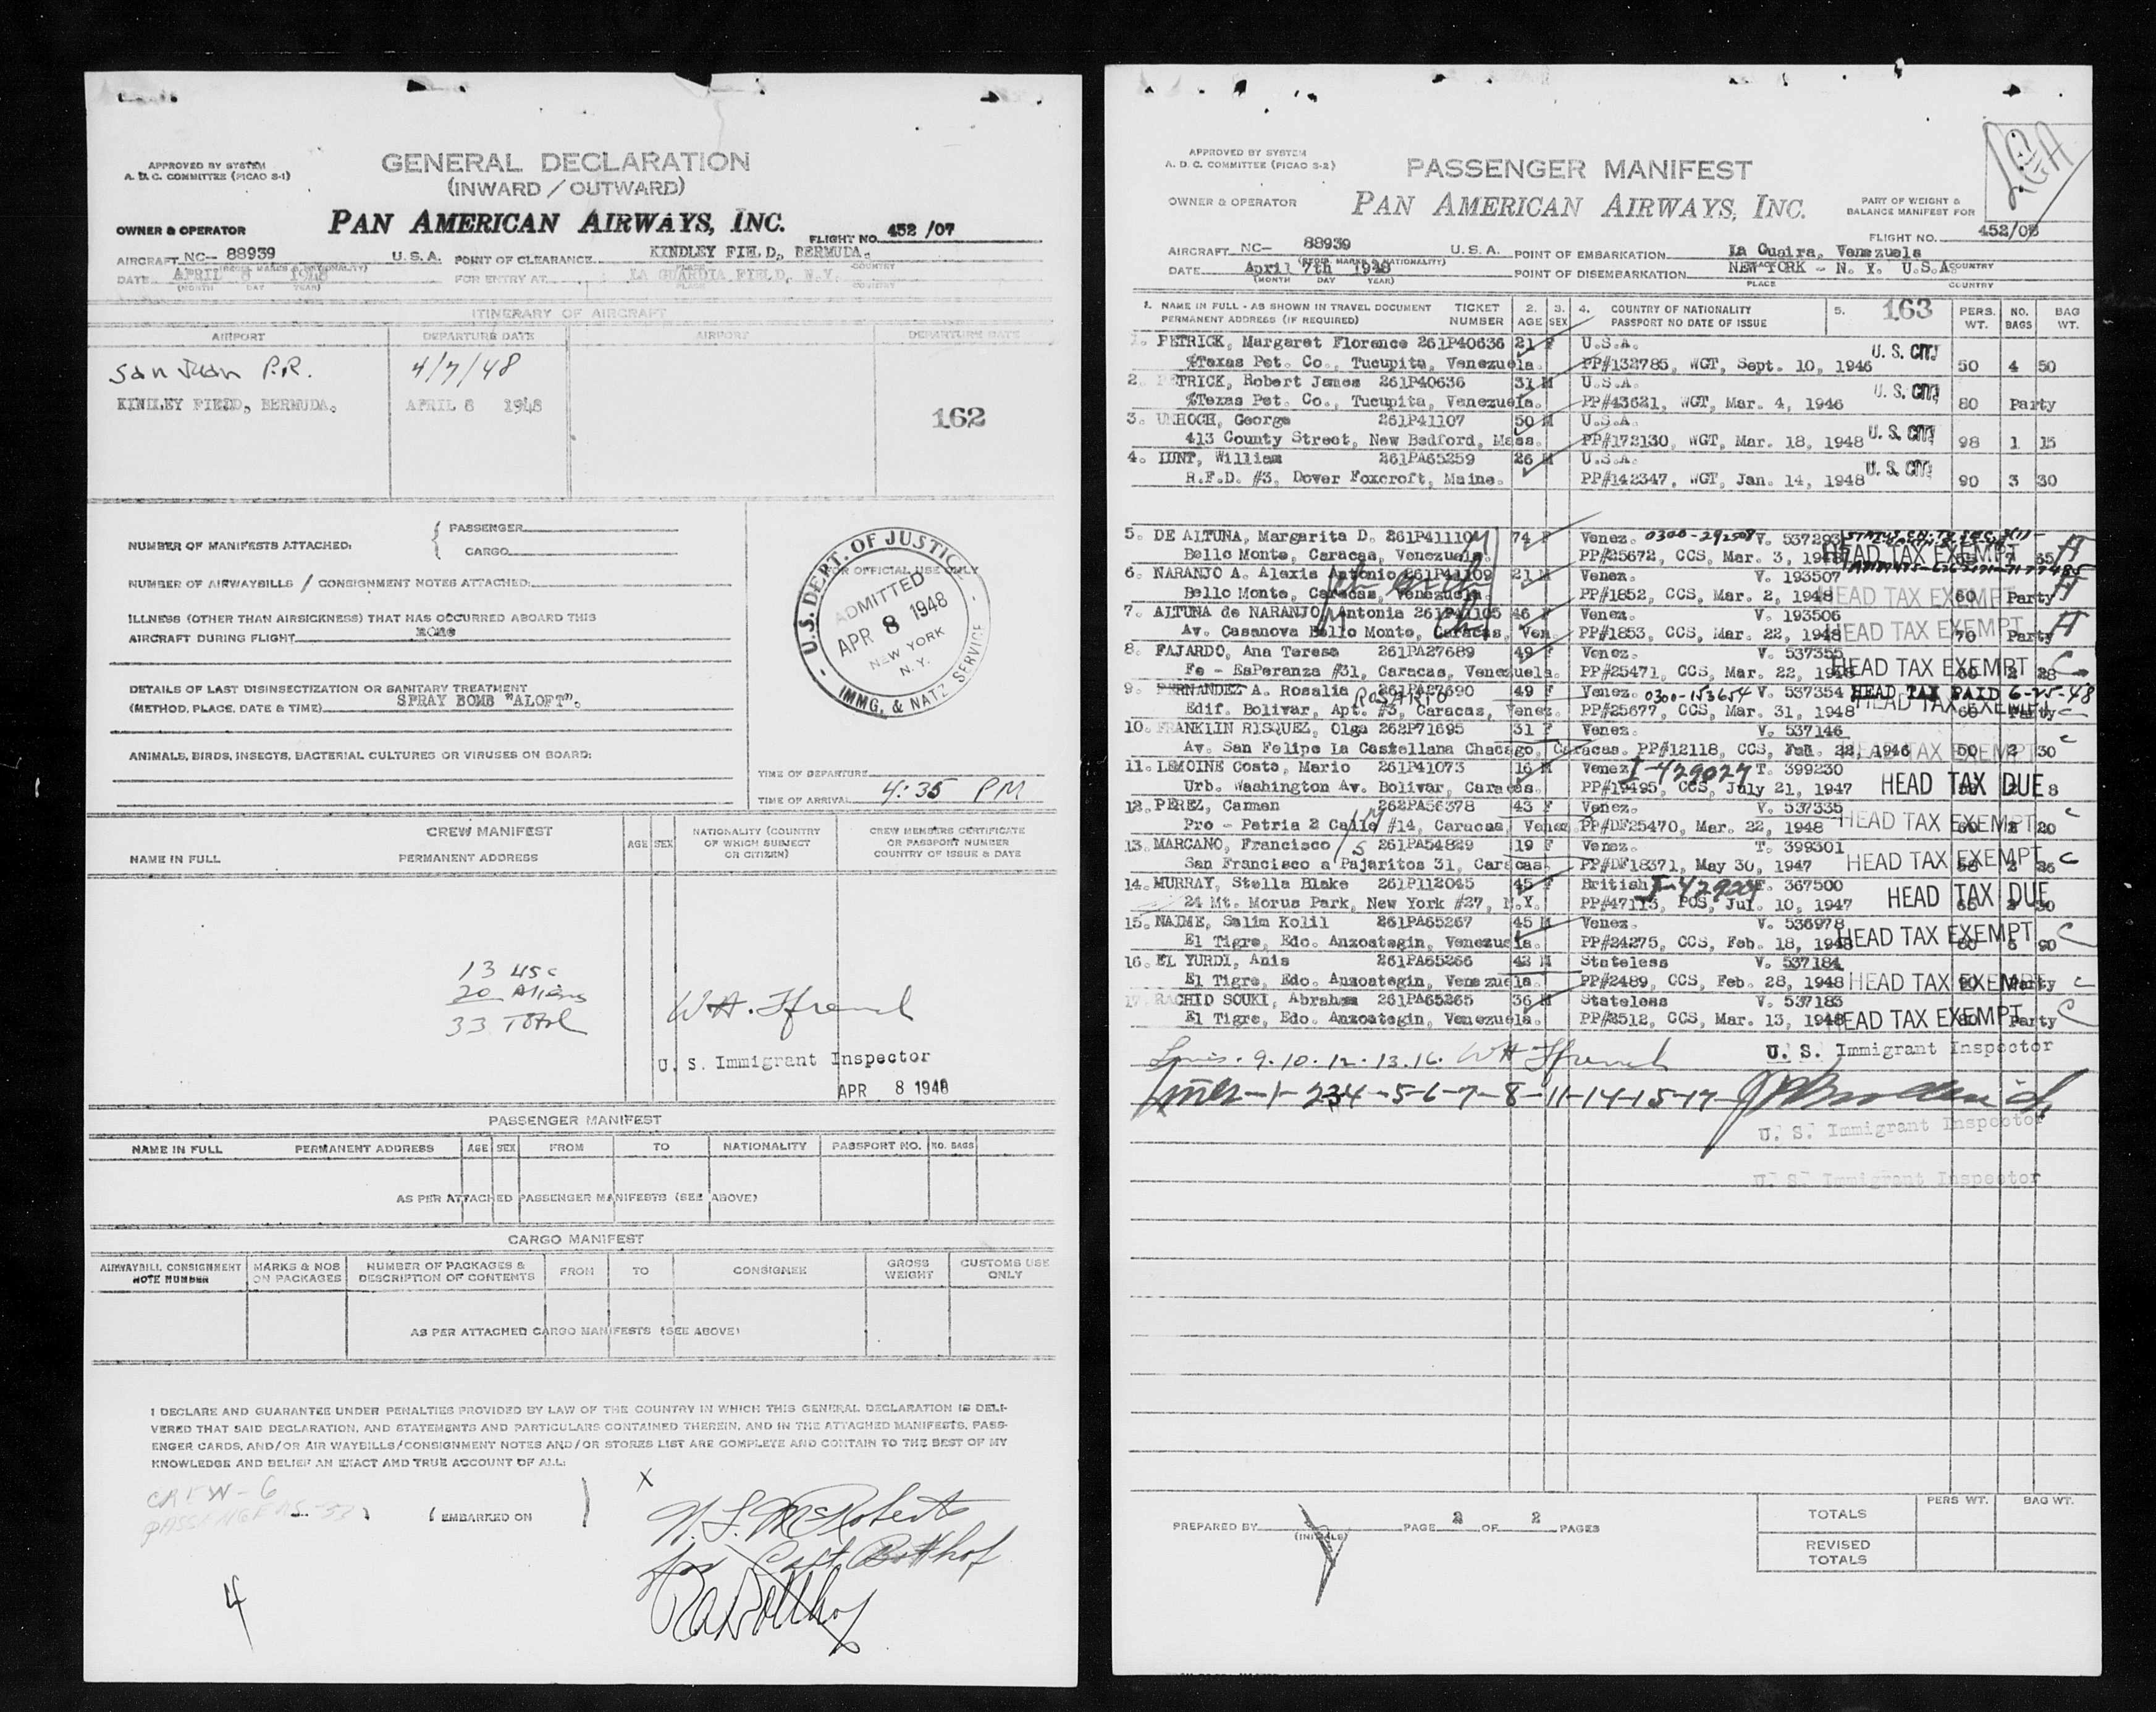 APPROVED BY SYSTEM
A. D. C. COMMITTEE (PICAO S-1)
GENERAL DECLARATION
(INWARD / OUTWARD)
OWNER & OPERATOR
PAN AMERICAN AIRWAYS, INC.
FLIGHT NO. 452 /07
AIRCRAFT NC- 88939 U. S. A. POINT OF CLEARANCE KINDLEY FIELD, BERMUDA.
(REGIS. MARKS & NATIONALITY) PLACE COUNTRY
DATE APRIL 8 1948 FOR ENTRY AT LA GUARDIA FIELD, N.Y.
(MONTH DAY YEAR) PLACE COUNTRY
ITINERARY OF AIRCRAFT
AIRPORT DEPARTURE DATE AIRPORT DEPARTURE DATE
San Juan P.R. 4/7/48
KINDLEY FIELD, BERMUDA. APRIL 8 1948
162
NUMBER OF MANIFESTS ATTACHED: { PASSENGER
CARGO
NUMBER OF AIRWAYBILLS / CONSIGNMENT NOTES ATTACHED:
ILLNESS (OTHER THAN AIRSICKNESS) THAT HAS OCCURRED ABOARD THIS
AIRCRAFT DURING FLIGHT none
DETAILS OF LAST DISINSECTIZATION OR SANITARY TREATMENT
(METHOD, PLACE, DATE & TIME) SPRAY BOMB "ALOFT".
ANIMALS, BIRDS, INSECTS, BACTERIAL CULTURES OR VIRUSES ON BOARD:
FOR OFFICIAL USE ONLY
U.S. DEPT. OF JUSTICE
ADMITTED
APR 8 1948
NEW YORK
N. Y.
IMMG. & NATZ. SERVICE
TIME OF DEPARTURE
TIME OF ARRIVAL 4:35 PM
CREW MANIFEST
NAME IN FULL PERMANENT ADDRESS AGE SEX NATIONALITY (COUNTRY OF WHICH SUBJECT OR CITIZEN) CREW MEMBERS CERTIFICATE OR PASSPORT NUMBER COUNTRY OF ISSUE & DATE
13 USC
20 Aliens
33 Total
W.H. Ffrench
U. S. Immigrant Inspector
APR 8 1948
PASSENGER MANIFEST
NAME IN FULL PERMANENT ADDRESS AGE SEX FROM TO NATIONALITY PASSPORT NO. NO. BAGS
AS PER ATTACHED PASSENGER MANIFESTS (SEE ABOVE)
CARGO MANIFEST
AIRWAYBILL CONSIGNMENT NOTE NUMBER MARKS & NOS ON PACKAGES NUMBER OF PACKAGES & DESCRIPTION OF CONTENTS FROM TO CONSIGNEE GROSS WEIGHT CUSTOMS USE ONLY
AS PER ATTACHED CARGO MANIFESTS (SEE ABOVE)
I DECLARE AND GUARANTEE UNDER PENALTIES PROVIDED BY LAW OF THE COUNTRY IN WHICH THIS GENERAL DECLARATION IS DELI-
VERED THAT SAID DECLARATION, AND STATEMENTS AND PARTICULARS CONTAINED THEREIN, AND IN THE ATTACHED MANIFESTS, PASS-
ENGER CARDS, AND/OR AIR WAYBILLS/CONSIGNMENT NOTES AND/OR STORES LIST ARE COMPLETE AND CONTAIN TO THE BEST OF MY
KNOWLEDGE AND BELIEF AN EXACT AND TRUE ACCOUNT OF ALL:
CREW - 6
PASSENGERS - 33
( EMBARKED ON )
X
N. L. McRoberts
for Capt. Botthof
RA Botthof
4
APPROVED BY SYSTEM
A. D. C. COMMITTEE (PICAO S-2)
PASSENGER MANIFEST
LGA
OWNER & OPERATOR
PAN AMERICAN AIRWAYS, INC.
PART OF WEIGHT &
BALANCE MANIFEST FOR
FLIGHT NO. 452/08
AIRCRAFT NC- 88939 U. S. A. POINT OF EMBARKATION La Guaira, Venezuela
(REGIS. MARKS & NATIONALITY)
DATE April 7th 1948 POINT OF DISEMBARKATION NEW YORK - N. Y. U.S.A.
(MONTH DAY YEAR) PLACE COUNTRY
1. NAME IN FULL - AS SHOWN IN TRAVEL DOCUMENT TICKET 2. 3. 4. COUNTRY OF NATIONALITY 5. 163 PERS. NO. BAG
PERMANENT ADDRESS (IF REQUIRED) NUMBER AGE SEX PASSPORT NO DATE OF ISSUE WT. BAGS WT.
1. PETRICK, Margaret Florence 261P40636 21 F U.S.A. U. S. CIT
%Texas Pet. Co., Tucupita, Venezuela. PP#132785, WGT, Sept. 10, 1946 50 4 50
2. PETRICK, Robert James 261P40636 31 M U.S.A. U. S. CIT
%Texas Pet. Co., Tucupita, Venezuela. PP#43621, WGT, Mar. 4, 1946 80 Party
3. UNHOCH, George 261P41107 50 M U.S.A. U. S. CIT
413 County Street, New Bedford, Mass. PP#172130, WGT, Mar. 18, 1948 98 1 15
4. LUNT, William 261PA65259 26 M U.S.A. U. S. CIT
R.F.D. #3, Dover Foxcroft, Maine. PP#142347, WGT, Jan. 14, 1948 90 3 30
5. DE ALTUNA, Margarita D. 261P41110 74 F Venez. V. 537293
Bello Monte, Caracas, Venezuela. PP#25672, CCS, Mar. 3, 1948 HEAD TAX EXEMPT 65
6. NARANJO A. Alexis Antonio 261P41109 21 M Venez. V. 193507
Bello Monte, Caracas, Venezuela. PP#1852, CCS, Mar. 2, 1948 HEAD TAX EXEMPT 60 Party
7. ALTUNA de NARANJO, Antonia 261P41105 46 F Venez. V. 193506
Av. Casanova Bello Monte, Caracas, Ven. PP#1853, CCS, Mar. 22, 1948 HEAD TAX EXEMPT 70 Party
8. FAJARDO, Ana Teresa 261PA27689 49 F Venez. V. 537355
Fe - EsPeranza #31, Caracas, Venezuela. PP#25471, CCS, Mar. 22, 1948 HEAD TAX EXEMPT 60 2 28
9. FERNANDEZ A. Rosalia 261PA27690 49 F Venez. 0300-153654 V. 537354 HEAD TAX PAID 6-25-48
Rosario
Edif. Bolivar, Apt. #3, Caracas, Venez. PP#25677, CCS, Mar. 31, 1948 HEAD TAX EXEMPT 60 Party
10. FRANKLIN RISQUEZ, Olga 262P71695 31 F Venez. V. 537146
Av. San Felipe La Castellana Chacago, Caracas. PP#12118, CCS, Feb. 22, 1946 HEAD TAX EXEMPT 50 2 30
11. LEMOINE Costa, Mario 261P41073 16 M Venez. I-429027 T. 399230
Urb. Washington Av. Bolivar, Caracas. PP#19495, CCS, July 21, 1947 HEAD TAX DUE
12. PEREZ, Carmen 262PA56378 43 F Venez. V. 537335
Pro - Patria 2 Calle #14, Caracas, Venez. PP#DF25470, Mar. 22, 1948 HEAD TAX EXEMPT 60 2 20
13. MARCANO, Francisco 261PA54829 19 F Venez. T. 399301
San Francisco a Pajaritos 31, Caracas. PP#DF18371, May 30, 1947 HEAD TAX EXEMPT 2
14. MURRAY, Stella Blake 261P112045 45 F British T. 367500
24 Mt. Morus Park, New York #27, N.Y. PP#47113, POS, Jul. 10, 1947 HEAD TAX DUE 65 2 30
15. NAIME, Salim Kolil 261PA65267 45 M Venez. V. 536978
El Tigre, Edo. Anzoategin, Venezuela. PP#24275, CCS, Feb. 18, 1948 HEAD TAX EXEMPT 80 6 90
16. EL YURDI, Anis 261PA65266 42 M Stateless V. 537184
El Tigre, Edo. Anzoategin, Venezuela. PP#2489, CCS, Feb. 28, 1948 HEAD TAX EXEMPT Party
17. RACHID SOUKI, Abraham 261PA65265 36 M Stateless V. 537183
El Tigre, Edo. Anzoategin, Venezuela. PP#2512, CCS, Mar. 13, 1948 HEAD TAX EXEMPT Party
Lines. 9. 10. 12. 13. 16. WH Ffrench U. S. Immigrant Inspector
Lines -1-2-3-4-5-6-7-8-11-14-15-17-
U. S. Immigrant Inspector
U. S. Immigrant Inspector
PREPARED BY (INITIALS) PAGE 2 OF 2 PAGES
PERS WT. BAG WT.
TOTALS
REVISED TOTALS